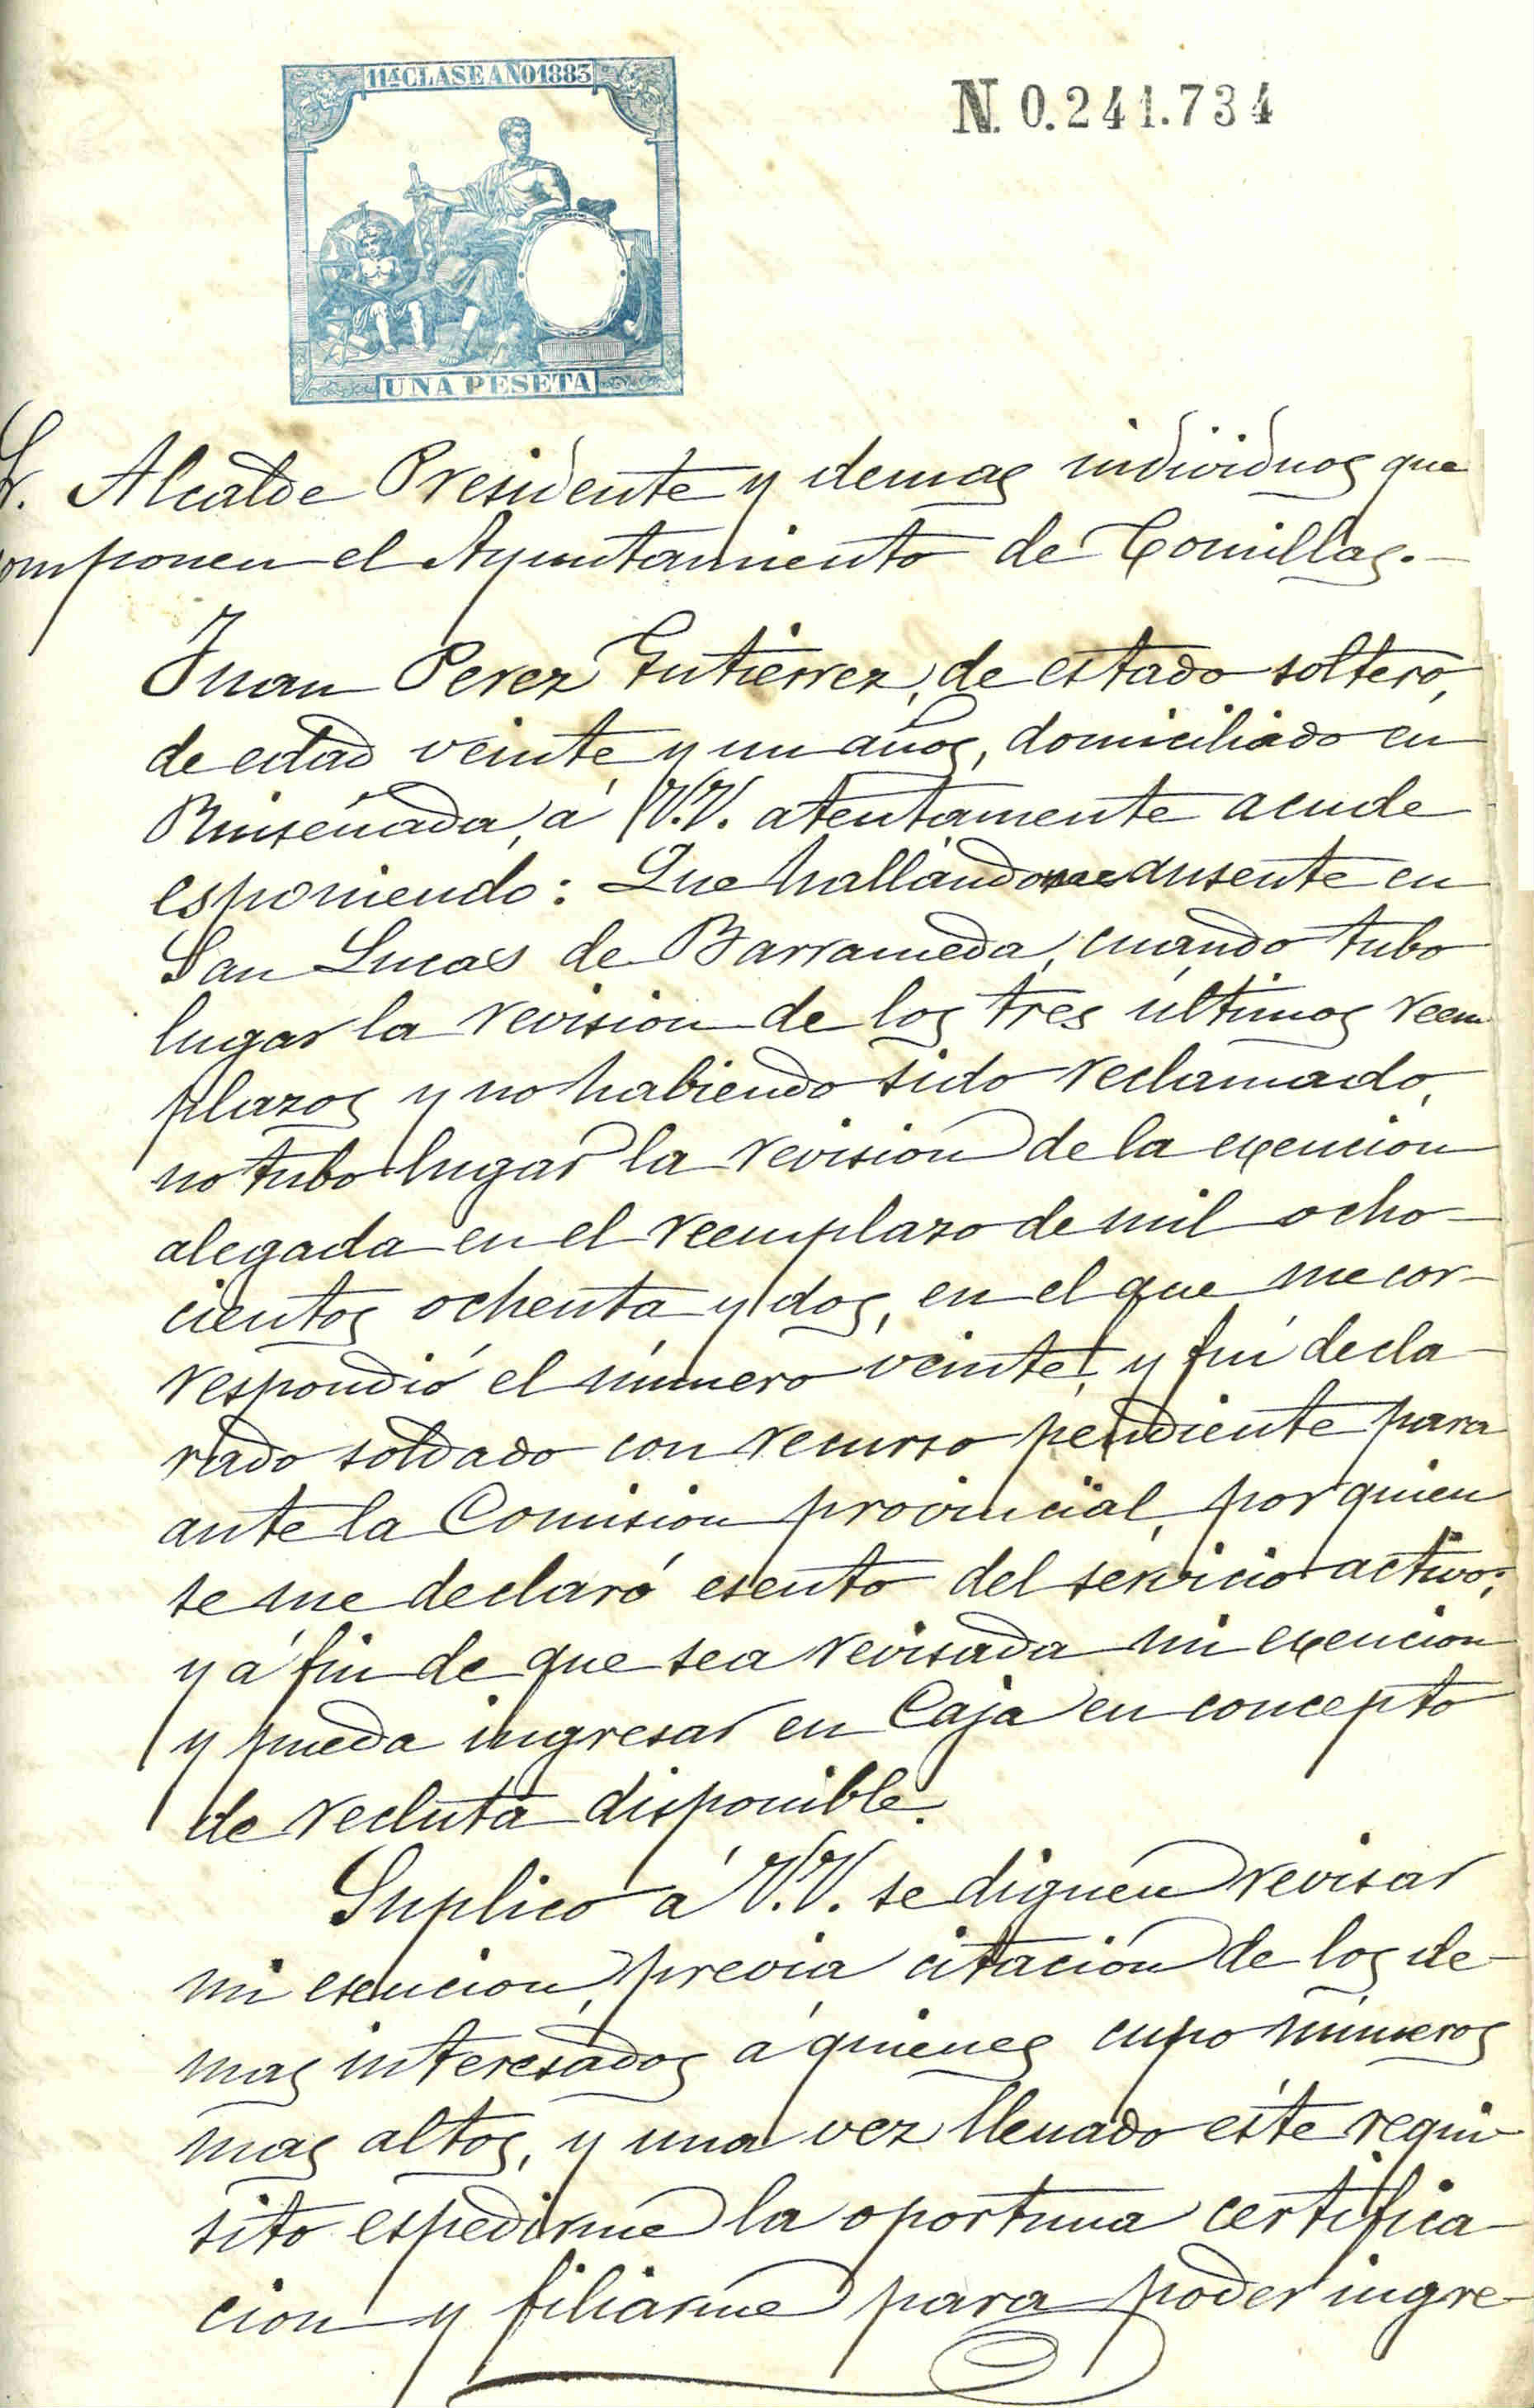 11ª CLASE AÑO 1883
N. 0.241.734
UNA PESETA
Sr. Alcalde Presidente y demas individuos que
componen el Ayuntamiento de Comillas.-
Juan Perez Gutierrez, de estado soltero,
de edad veinte y un años, domiciliado en
Ruiseñada, á V.V. atentamente acude
esponiendo: Que hallándome ausente en
San Lucas de Barrameda, cuando tubo
lugar la revision de los tres últimos reem
plazos y no habiendo sido reclamado,
no tubo lugar la revision de la exencion
alegada en el reemplazo de mil ocho-
cientos ochenta y dos, en el que me cor-
respondió el número veinte, y fuí decla-
rado soldado con recurso pendiente para
ante la Comision provincial, por quien
se me declaró esento del servicio activo;
y á fin de que sea revisada mi exencion
y pueda ingresar en Caja en concepto
de recluta disponible.
Suplico á V.V. se dignen revisar
mi esencion, previa citacion de los de-
mas interesados á quienes cupo números
mas altos, y una vez llenado éste requi-
sito espedirme la oportuna certifica-
cion y filiarme para poder ingre-